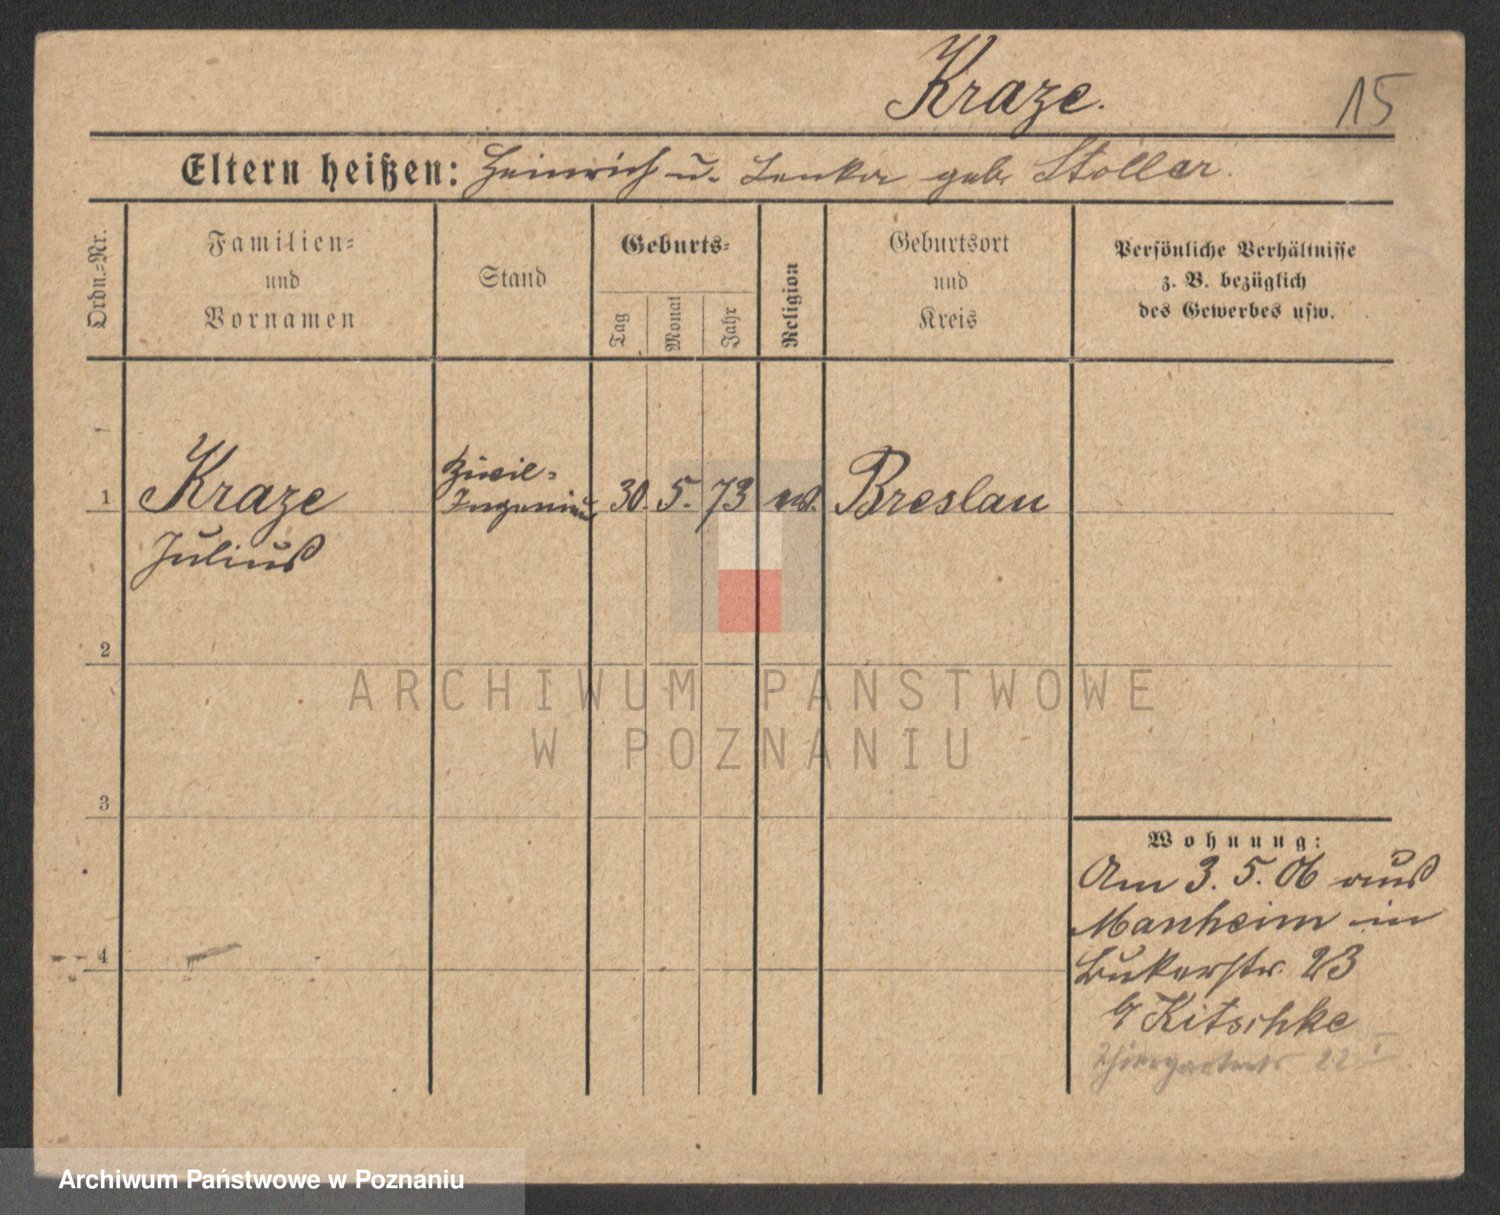 Kraze.
15
Eltern heißen: Heinrich u. geb. Stoller.
Ordn.=Nr.
Familien=
und
Vornamen
Stand
Geburts=
Tag
Monat
Jahr
Religion
Geburtsort
und
Kreis
Persönliche Verhältnisse
z. B. bezüglich
des Gewerbes usw.
1
Kraze
Julius
Zivil=
Ingenieur
30. 5. 73
ev.
Breslau
2
3
4
Wohnung:
Am 3. 5. 06 aus
Manheim in
23
Kitschke
22 I
ARCHIWUM PAŃSTWOWE
W POZNANIU
Archiwum Państwowe w Poznaniu